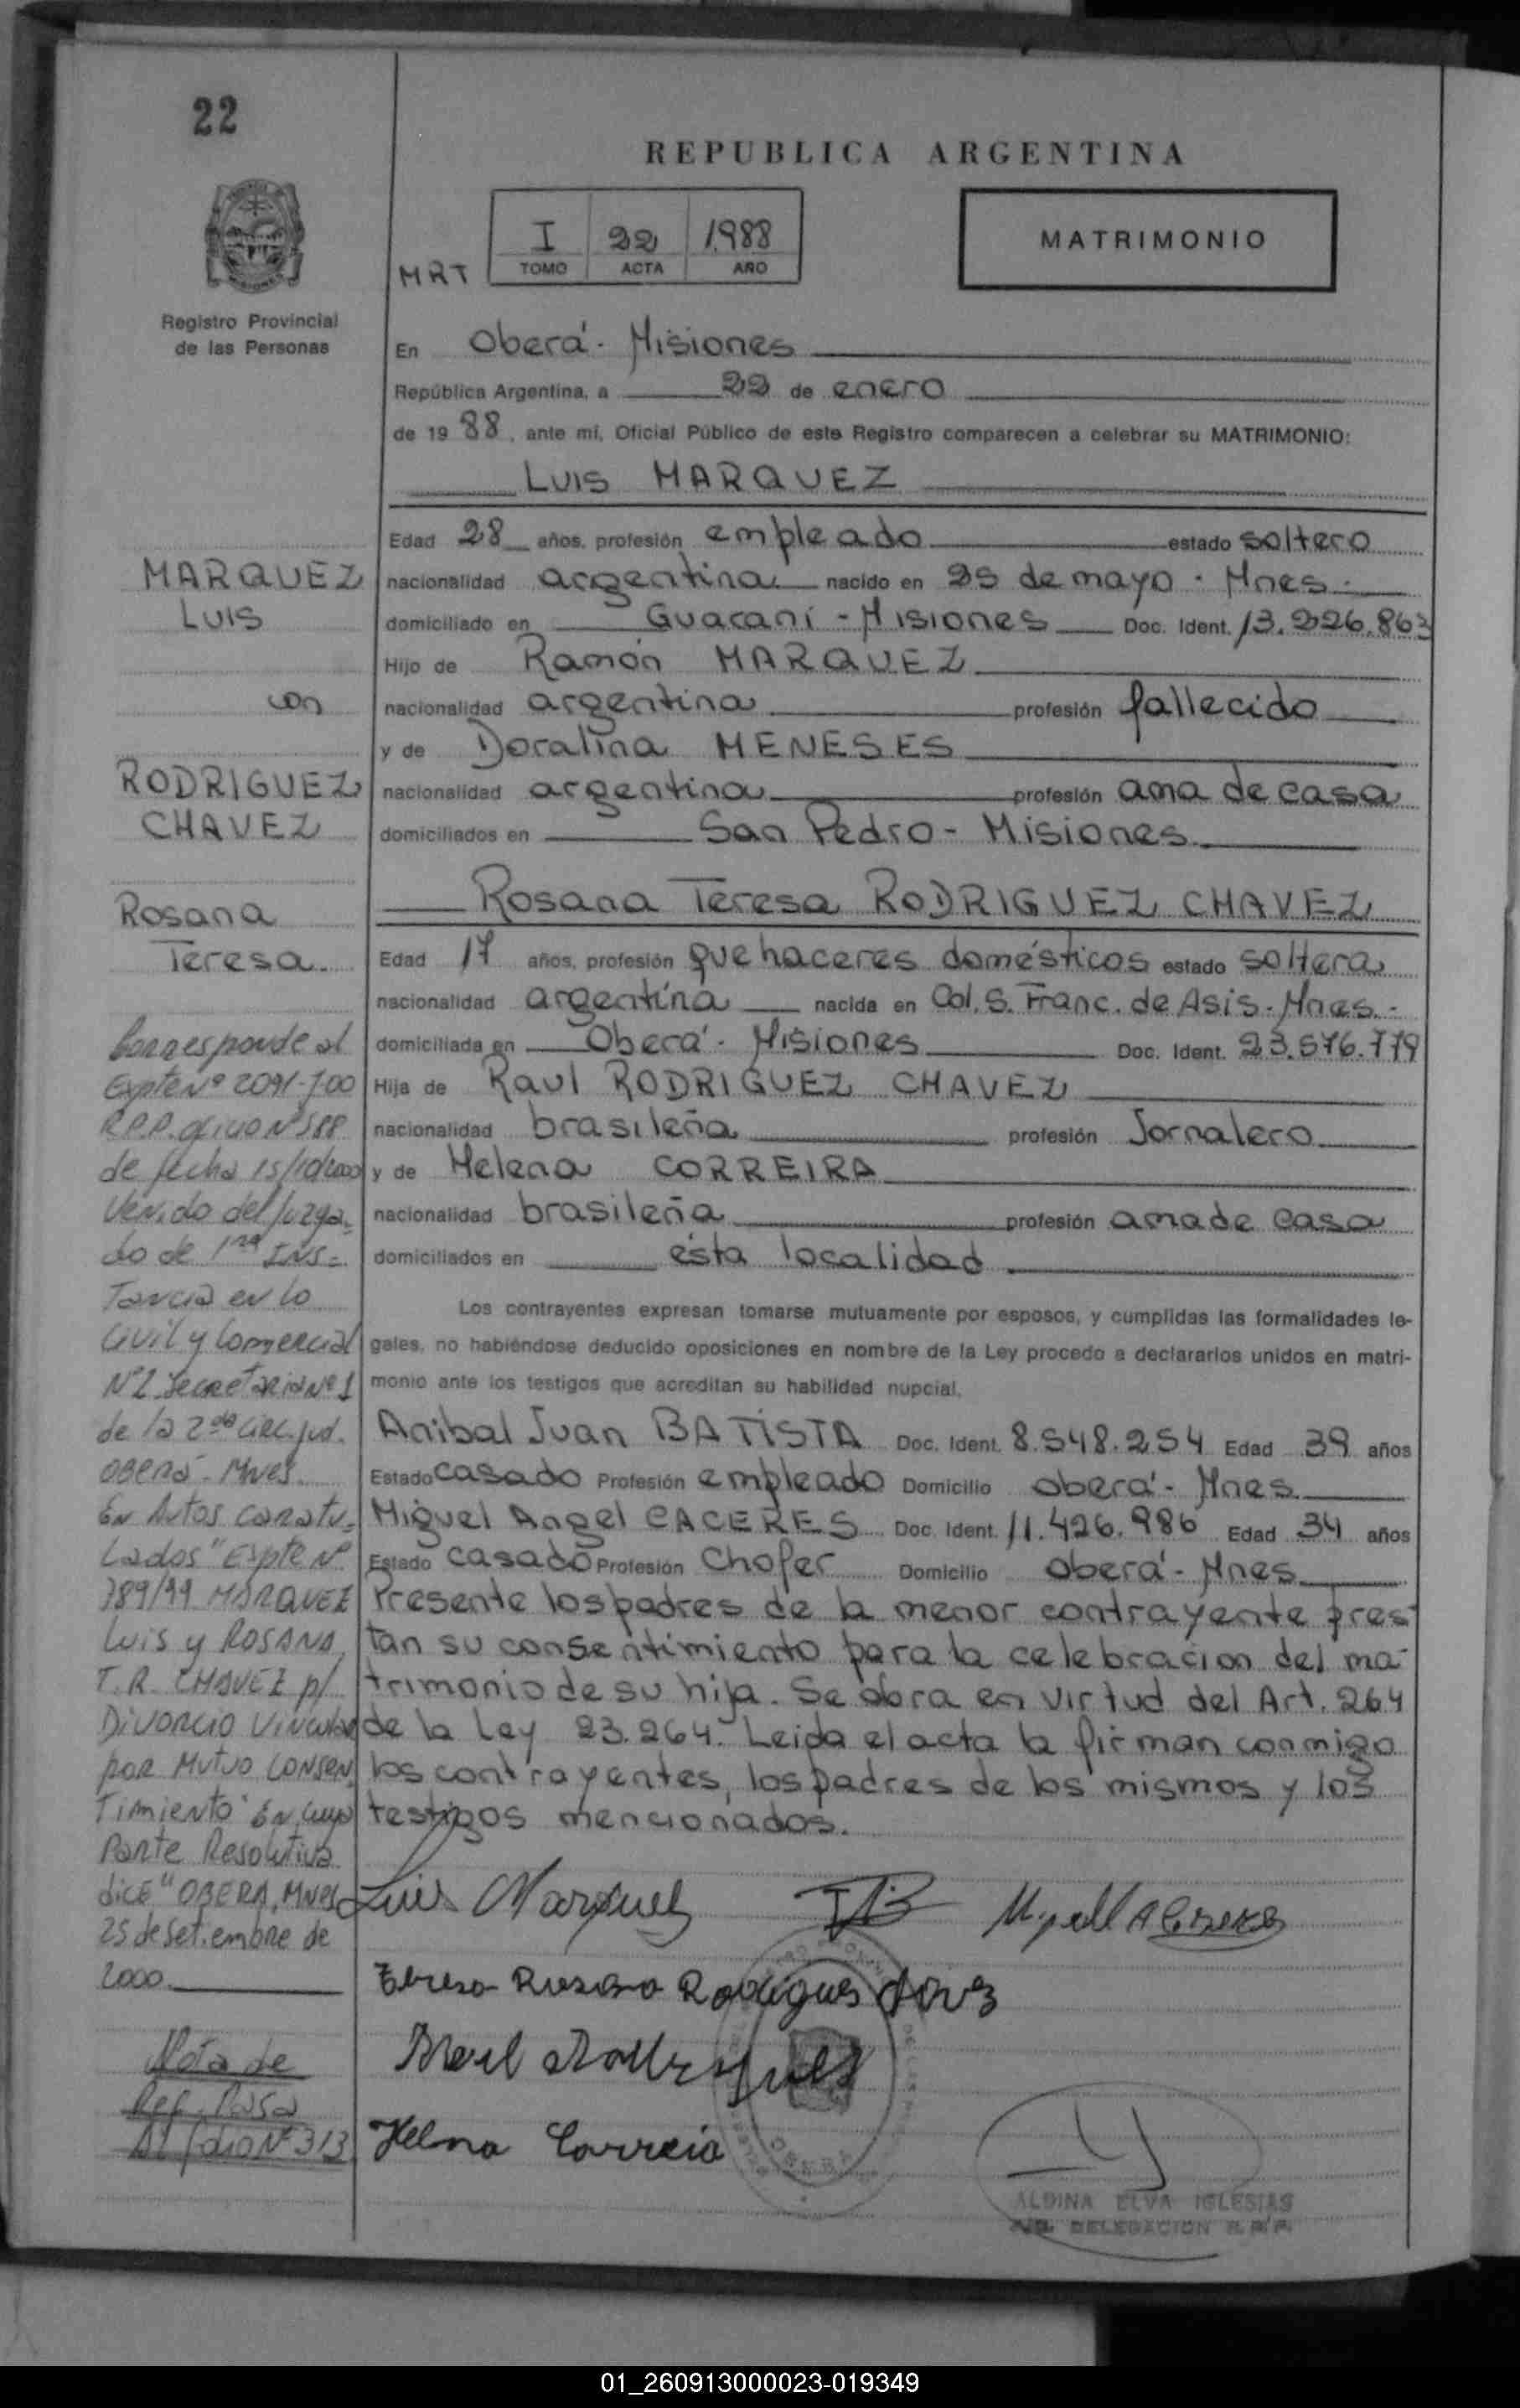 22
REPUBLICA ARGENTINA
I 22 1988
TOMO ACTA AÑO
MRT
MATRIMONIO
Registro Provincial
de las Personas
En Oberá - Misiones
República Argentina, a 22 de enero
de 19 88, ante mí, Oficial Público de este Registro comparecen a celebrar su MATRIMONIO:
Luis MARQUEZ
Edad 28 años, profesión empleado estado soltero
nacionalidad argentina nacido en 25 de mayo - Mnes.
domiciliado en Guaraní - Misiones Doc. Ident. 13.226.863
Hijo de Ramón MARQUEZ
nacionalidad argentina profesión fallecido
y de Doralina MENESES
nacionalidad argentina profesión ama de casa
domiciliados en San Pedro - Misiones
Rosana Teresa RODRIGUEZ CHAVEZ
Edad 17 años, profesión quehaceres domésticos estado soltera
nacionalidad argentina nacida en Col. S. Franc. de Asis - Mnes.-
domiciliada en Oberá - Misiones Doc. Ident. 23.576.779
Hija de Raul RODRIGUEZ CHAVEZ
nacionalidad brasileña profesión Jornalero
y de Helena CORREIRA
nacionalidad brasileña profesión ama de casa
domiciliados en ésta localidad
Los contrayentes expresan tomarse mutuamente por esposos, y cumplidas las formalidades le-
gales, no habiéndose deducido oposiciones en nombre de la Ley procedo a declararlos unidos en matri-
monio ante los testigos que acreditan su habilidad nupcial.
Anibal Juan BATISTA Doc. Ident. 8.548.254 Edad 39 años
Estado casado Profesión empleado Domicilio Oberá - Mnes.
Miguel Angel CACERES Doc. Ident. 11.426.986 Edad 34 años
Estado casado Profesión Chofer Domicilio Oberá - Mnes.
Presente los padres de la menor contrayente pres-
tan su consentimiento para la celebracion del ma-
trimonio de su hija. Se obra en virtud del Art. 264
de la Ley 23.264. Leida el acta la firman conmigo
los contrayentes, los padres de los mismos y los
testigos mencionados.
Luis Marquez
Miguel A Caceres
Teresa Rosana Rodrigues
Helna Correia
ALDINA ELVA IGLESIAS
DELEGACION R.P.P.
MARQUEZ
LUIS
con
RODRIGUEZ
CHAVEZ
Rosana
Teresa.
Corresponde al
Expte Nº 2091-J-00
R.P.P. oficio Nº 588
de fecha 15/10/2000
Venido del Juzga-
do de 1ra INS-
Tancia en lo
Civil y Comercial
Nº 2 Secretaria Nº 1
de la 2da Circ. Jud.
OBERÁ - Mnes.
En Autos caratu-
lados "Expte Nº
789/99 MARQUEZ
Luis y ROSANA
T. R. CHAVEZ p/
Divorcio Vincular
por Mutuo Consen
Timiento" En cuya
Parte Resolutiva
dice "OBERA, Mnes
25 de setiembre de
2000.
Nota de
Ref. Pasa
Al folio Nº 313
01_260913000023-019349